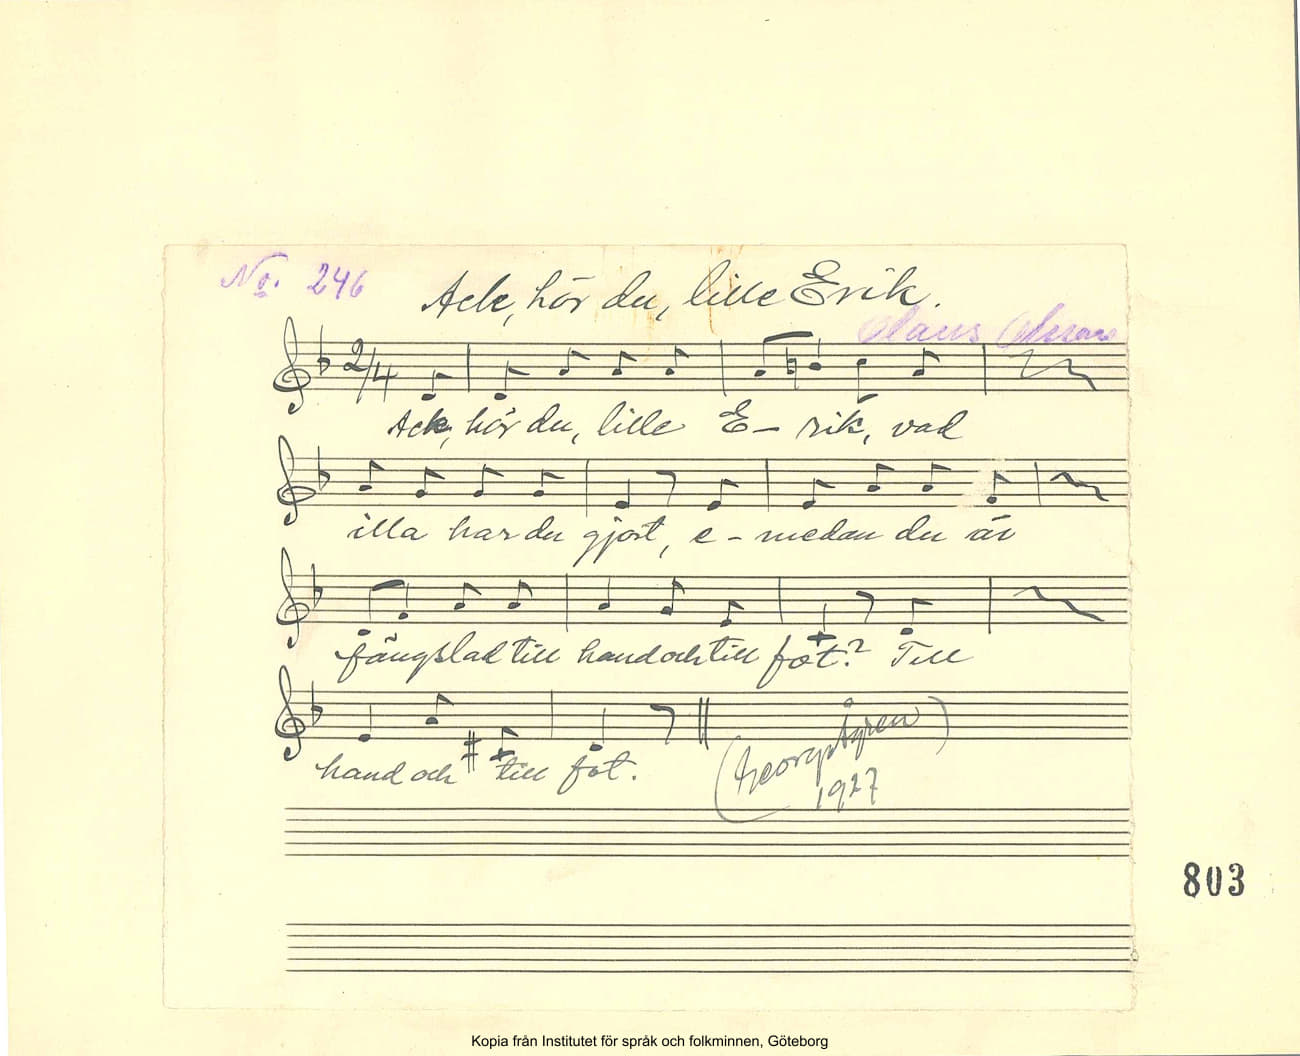 No. 246
Ack, hör du, lille Erik.
Claus Olsson
2/4
Ack, hör du, lille E- rik, vad
illa har du gjort, e - medan du är
fängslad till hand och till fot? Till
hand och till fot.
(George Ågren)
1927
803
Kopia från Institutet för språk och folkminnen, Göteborg